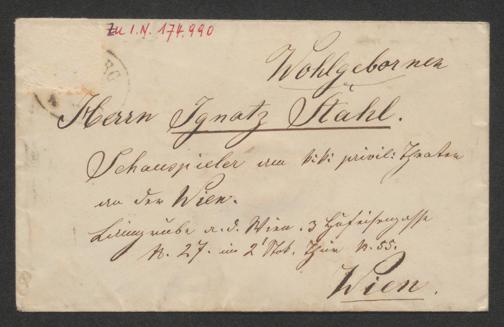 Zu I.N. 174.990
RG
Wohlgebornen
Herrn Ignatz Stahl.
Schauspieler am k: k: privil: Theater
an der Wien.
Laimgrube a. d. Wien. 3 Hufeisengasse
N. 27. im 2t Stok. Thür N. 55.
Wien.